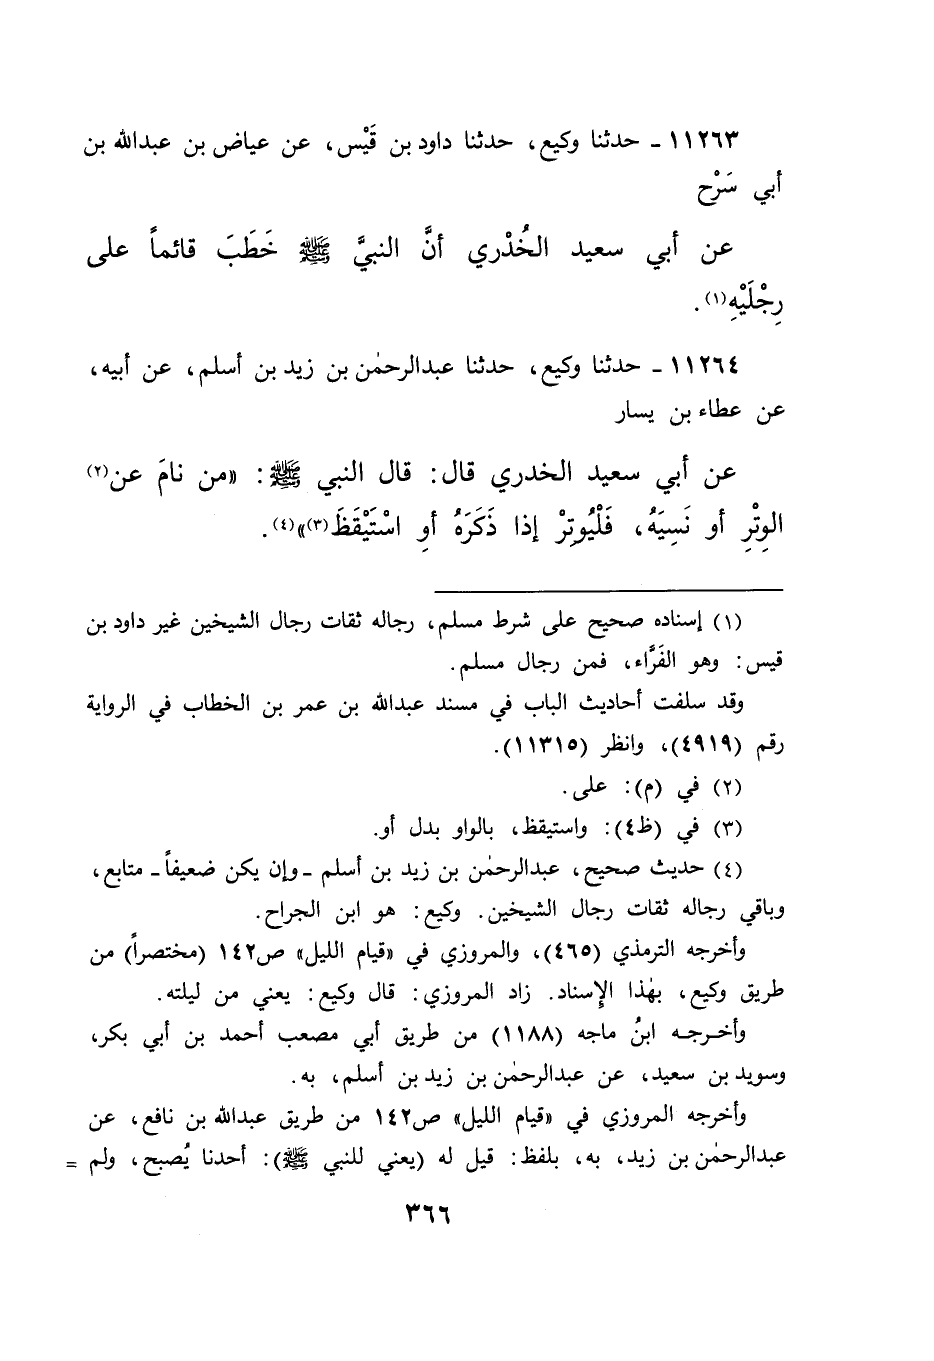 ١١٢٦٣ ـ حدثنا وكيع، حدثنا داود بن قَيْس، عن عياض بن عبدالله بن
أبي سَرْح
عن أبي سعيد الخُدْري أنَّ النبيَّ ﷺ خَطَبَ قائماً على
رِجْلَيْهِ(١).
١١٢٦٤ ـ حدثنا وكيع، حدثنا عبدالرحمٰن بن زيد بن أسلم، عن أبيه،
عن عطاء بن يسار
عن أبي سعيد الخدري قال: قال النبي ﷺ: «من نامَ عن(٢)
الوِتْرِ أو نَسِيَهُ، فَلْيُوتِرْ إذا ذَكَرَهُ أوِ اسْتَيْقَظَ(٣)»(٤).
(١) إسناده صحيح على شرط مسلم، رجاله ثقات رجال الشيخين غير داود بن
قيس: وهو الفَرَّاء، فمن رجال مسلم.
وقد سلفت أحاديث الباب في مسند عبدالله بن عمر بن الخطاب في الرواية
رقم (٤٩١٩)، وانظر (١١٣١٥).
(٢) في (م): على.
(٣) في (ظ٤): واستيقظ، بالواو بدل أو.
(٤) حديث صحيح، عبدالرحمٰن بن زيد بن أسلم ـ وإن يكن ضعيفاً ـ متابع،
وباقي رجاله ثقات رجال الشيخين. وكيع: هو ابن الجراح.
وأخرجه الترمذي (٤٦٥)، والمروزي في «قيام الليل» ص١٤٢ (مختصراً) من
طريق وكيع، بهٰذا الإسناد. زاد المروزي: قال وكيع: يعني من ليلته.
وأخـرجـه ابنُ ماجه (١١٨٨) من طريق أبي مصعب أحمد بن أبي بكر،
وسويد بن سعيد، عن عبدالرحمٰن بن زيد بن أسلم، به.
وأخرجه المروزي في «قيام الليل» ص١٤٢ من طريق عبدالله بن نافع، عن
عبدالرحمٰن بن زيد، به، بلفظ: قيل له (يعني للنبي ﷺ): أحدنا يُصبح، ولم =
٣٦٦